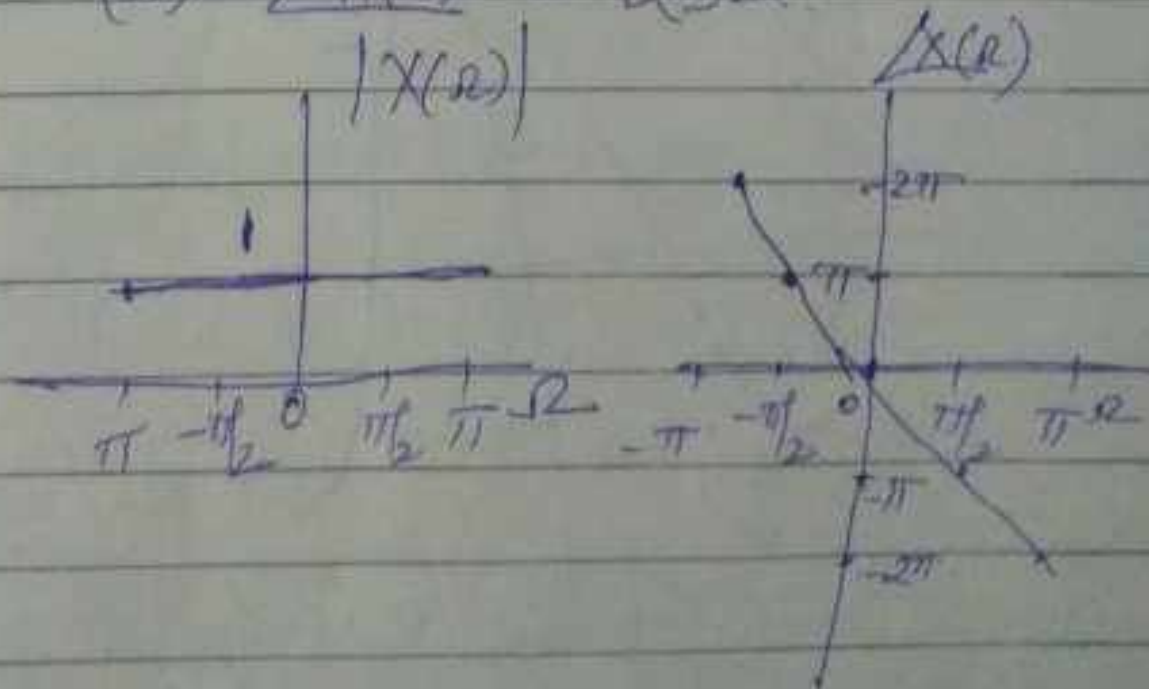 |X(Ω)|
∠X(Ω)
1
π -π/2 0 π/2 π Ω
2π
π
-π -π/2 0 π/2 π Ω
-π
-2π